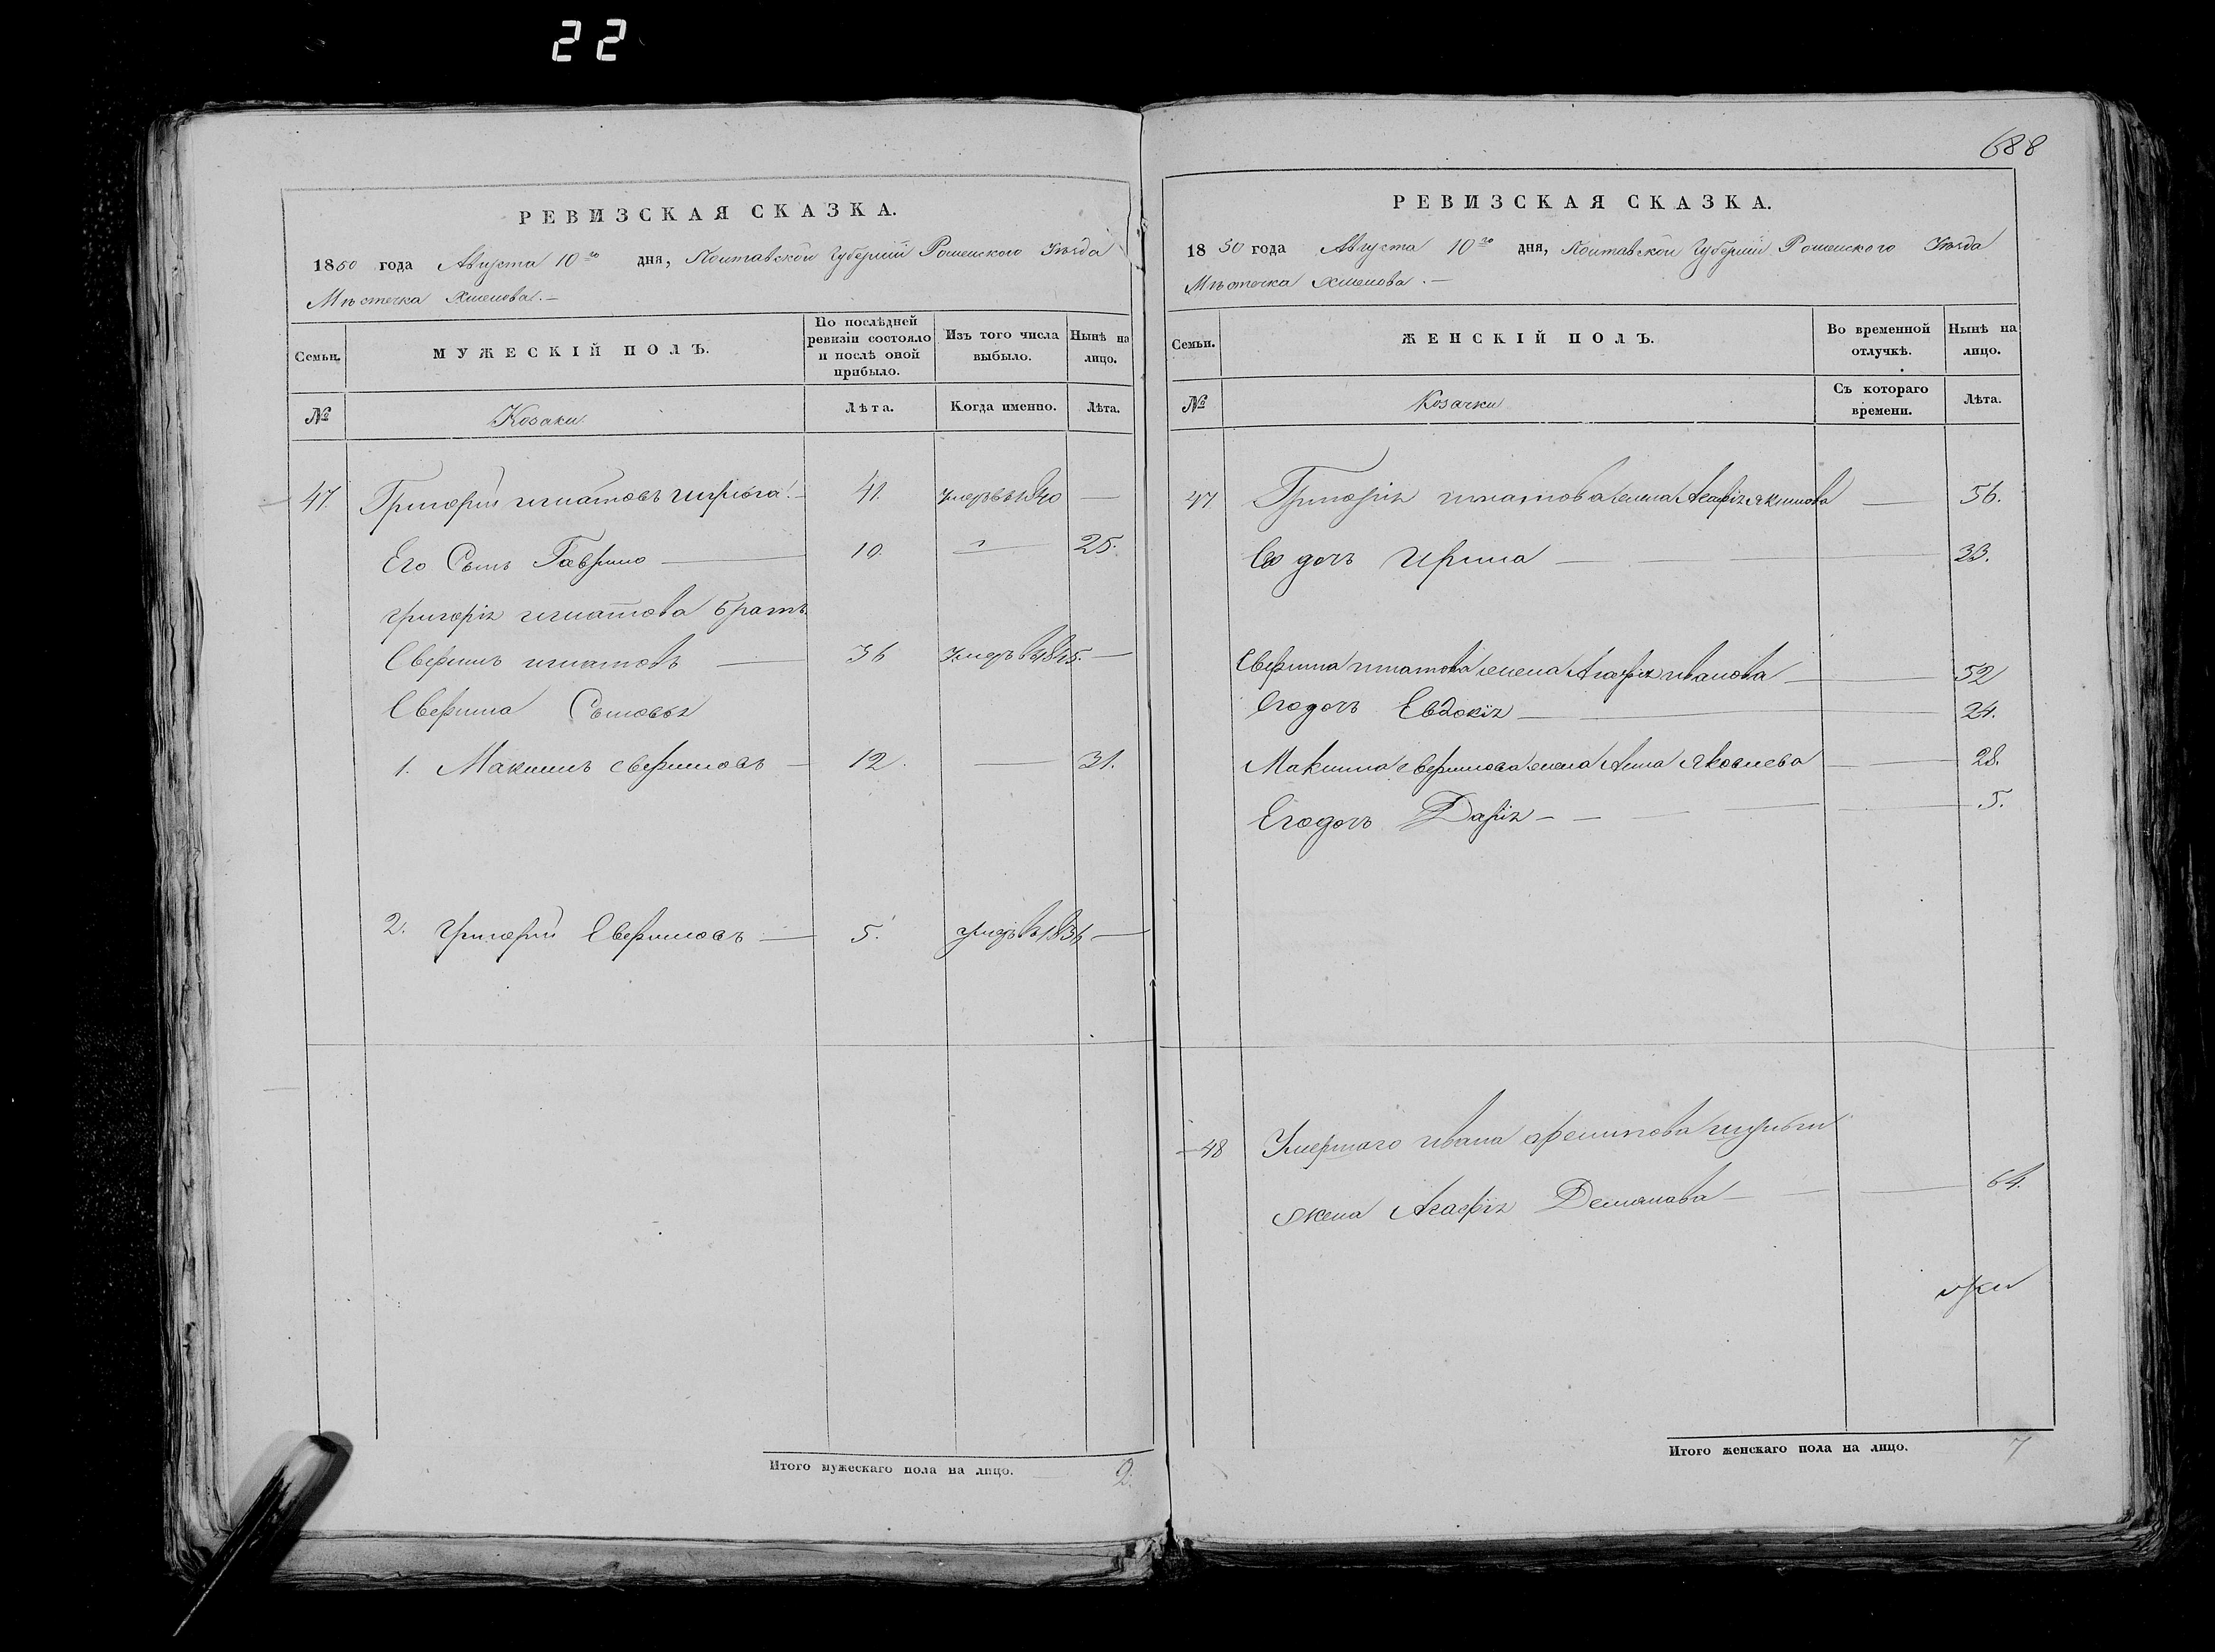 22
688
РЕВИЗСКАЯ СКАЗКА.
1850 года Августа 10го дня, Полтавской Губернии Роменского Уезда
Мѣстечка Хмелова.—
Семьи.
МУЖЕСКІЙ ПОЛЪ.
По послѣдней ревизіи состояло и послѣ оной прибыло.
Изъ того числа выбыло.
Нынѣ на лицо.
№
Козаки
Лѣта.
Когда именно.
Лѣта.
47. Григорий игнатовъ 41. умеръ въ 1840 —
Его Сынъ Гаврило — 10. — 25.
григорія игнатова братъ
Сверинъ игнатовъ — 36 умеръ въ 1845. —
Сверина Сыновья
1. Максимъ свериновъ — 12. — 31.
2. григорий Свериновъ — 5. умеръ въ 1836 —
Итого мужескаго пола на лицо. 2.
РЕВИЗСКАЯ СКАЗКА.
1850 года Августа 10го дня, Полтавской Губернии Роменского Уезда
Мѣстечка Хмелова.—
Семьи.
ЖЕНСКІЙ ПОЛЪ.
Во временной отлучкѣ.
Нынѣ на лицо.
№
Козачки
Съ котораго времени.
Лѣта.
47 Григорія игнатова жена Агафія якимова — 56.
Его дочь Ирина — 33.
Сверина игнатова жена Агафія иванова — 52
Его дочь Евдокія — 24.
Максима сверинова жена Анна яковлева — 28.
Его дочь Дарія — 5.
48 Умершаго ивана
жена Агафія Демянова — 64.
Итого женскаго пола на лицо. 7